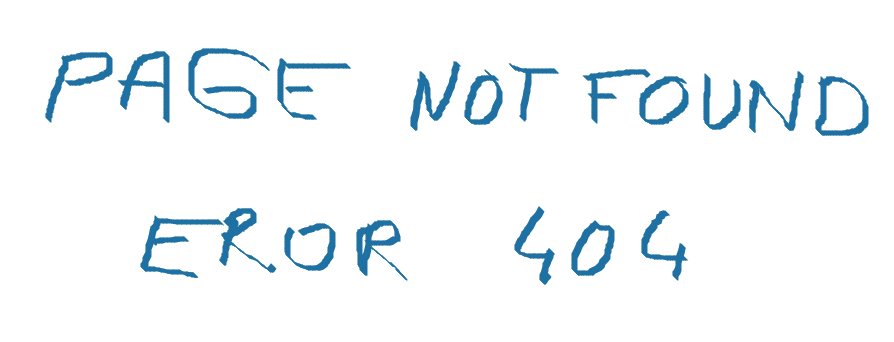 PAGE NOT FOUND
EROR 404